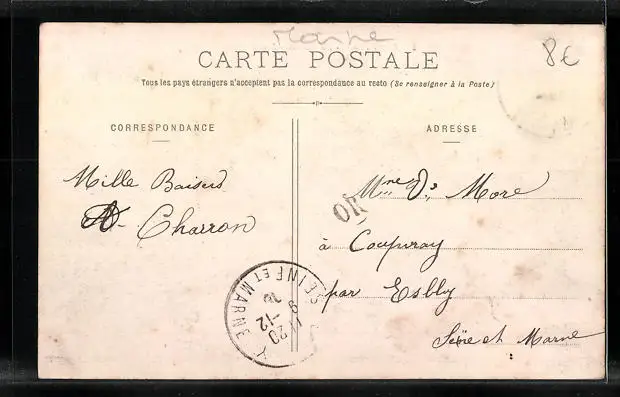 Marne
8€
CARTE POSTALE
Tous les pays étrangers n'acceptent pas la correspondance au recto (Se renseigner à la Poste)
CORRESPONDANCE
Mille Baisers
A. Charron
ADRESSE
Mme Vve More
OR
à Coupvray
par Esbly
Seine et Marne
SEINE ET MARNE